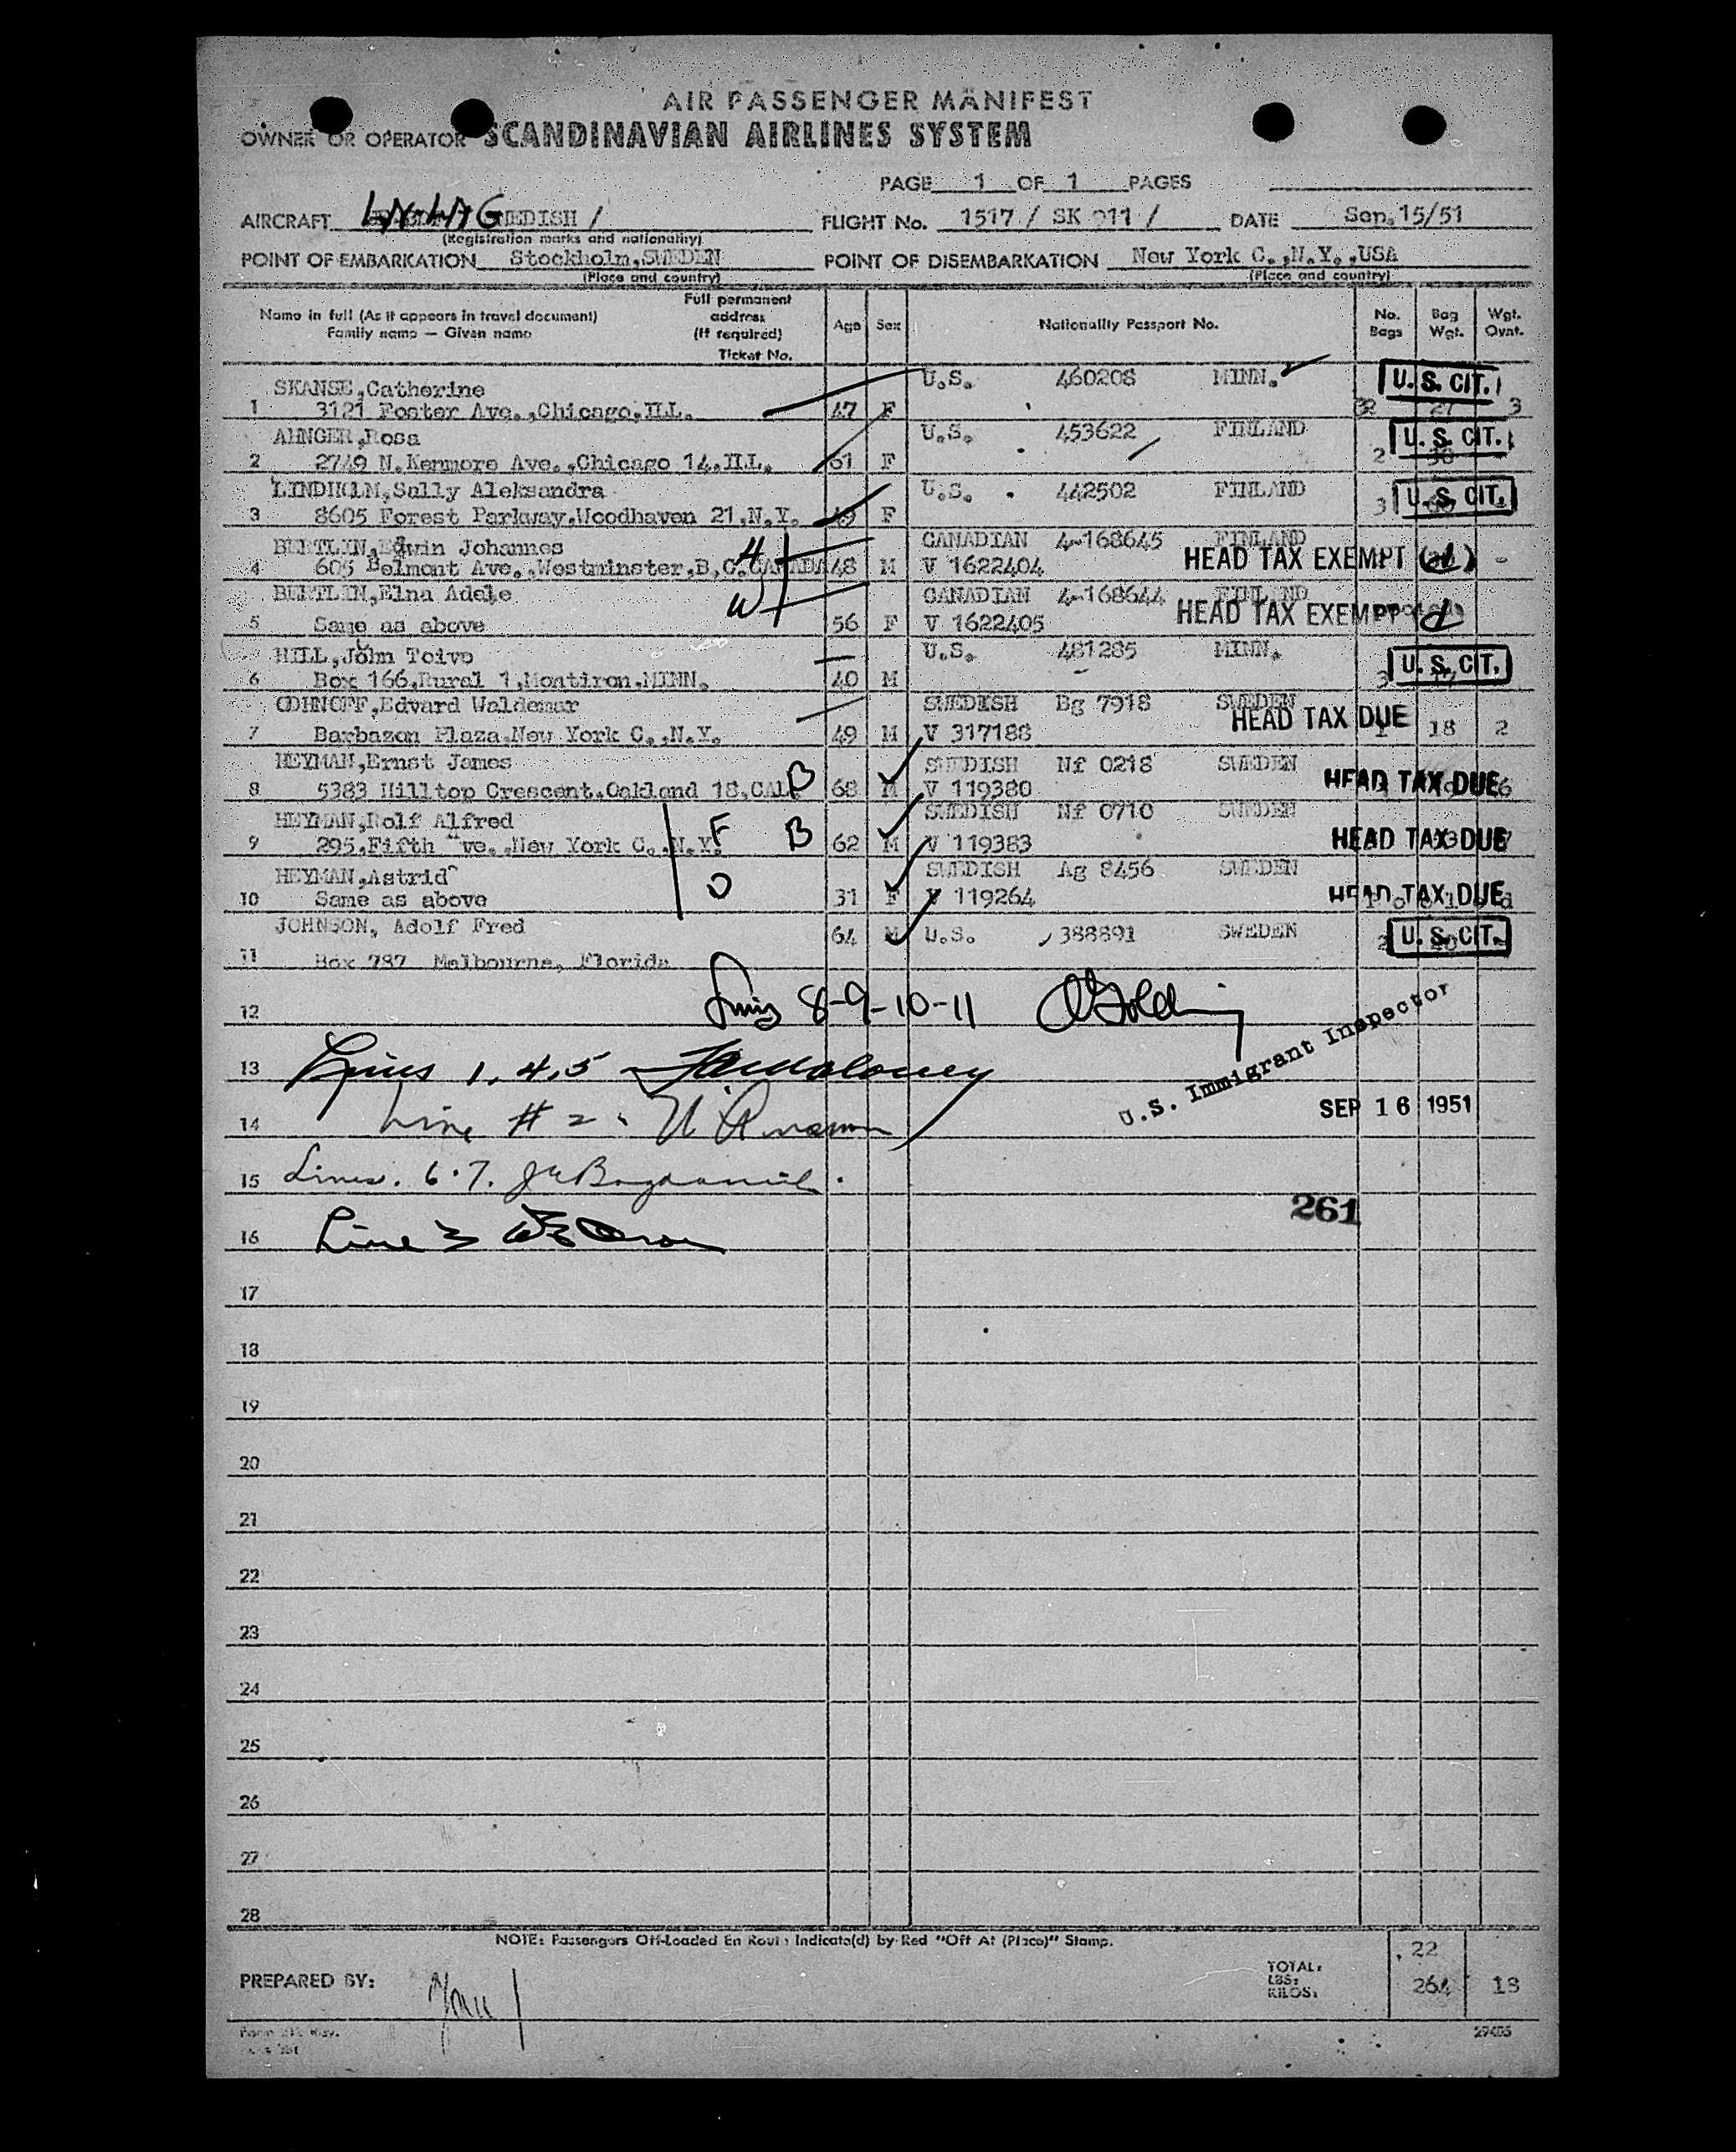 AIR PASSENGER MANIFEST
OWNER OR OPERATOR SCANDINAVIAN AIRLINES SYSTEM
PAGE 1 OF 1 PAGES
AIRCRAFT LN-LAG SWEDISH / FLIGHT No. 1517 / SK 911 / DATE Sep. 15/51
(Registration marks and nationality)
POINT OF EMBARKATION Stockholm, SWEDEN POINT OF DISEMBARKATION New York C., N.Y., USA
(Place and country) (Place and country)
Name in full (As it appears in travel document) Family name — Given name Full permanent address (If required) Ticket No. Age Sex Nationality Passport No. No. Bags Bag Wgt. Wgt. Ovnt.
SKANSE, Catherine U.S. 460208 MINN. U.S. CIT.
1 3121 Foster Ave., Chicago, ILL. 47 F 27 3
AHNGER, Rosa U.S. 453622 FINLAND U.S. CIT.
2 2749 N. Kenmore Ave., Chicago 14, ILL. 61 F 2 30
LINDHOLM, Sally Aleksandra U.S. 442502 FINLAND U.S. CIT.
3 8605 Forest Parkway, Woodhaven 21, N.Y. 49 F 3
BERTLIN, Edwin Johannes H CANADIAN 4-168645 FINLAND
4 605 Belmont Ave., Westminster, B.C. CANADA 48 M V 1622404 HEAD TAX EXEMPT (d) -
BERTLIN, Elna Adele W CANADIAN 4-168644 FINLAND
5 Same as above 56 F V 1622405 HEAD TAX EXEMPT d
HILL, John Toivo U.S. 481285 MINN. U.S. CIT.
6 Box 166, Rural 1, Montiron, MINN. 40 M 3 17
ODHNOFF, Edvard Waldemar SWEDISH Bg 7918 SWEDEN
7 Barbazon Plaza, New York C., N.Y. 49 M V 317188 HEAD TAX DUE 1 18 2
HEYMAN, Ernst James SWEDISH Nf 0218 SWEDEN
8 5383 Hilltop Crescent, Oakland 18, CAL. B 68 M V 119380 HEAD TAX DUE 6
HEYMAN, Rolf Alfred SWEDISH Nf 0710 SWEDEN
9 295, Fifth Ave., New York C., N.Y. F B 62 M V 119383 HEAD TAX DUE
HEYMAN, Astrid SWEDISH Ag 8456 SWEDEN
10 Same as above D 31 F V 119264 HEAD TAX DUE
JOHNSON, Adolf Fred 64 M U.S. 388891 SWEDEN 2 U.S. CIT.
11 Box 787 Melbourne, Florida
12 Lines 8-9-10-11 Golding
U.S. Immigrant Inspector
13 Lines 1, 4, 5 Maloney
SEP 16 1951
14 Line # 2
15 Lines. 6.7.
261
16 Line 3
17
18
19
20
21
22
23
24
25
26
27
28
NOTE: Passengers Off-Loaded En Route Indicate(d) by Red "Off At (Place)" Stamp.
PREPARED BY:
TOTAL: 22
LBS:
KILOS: 264 18
29405